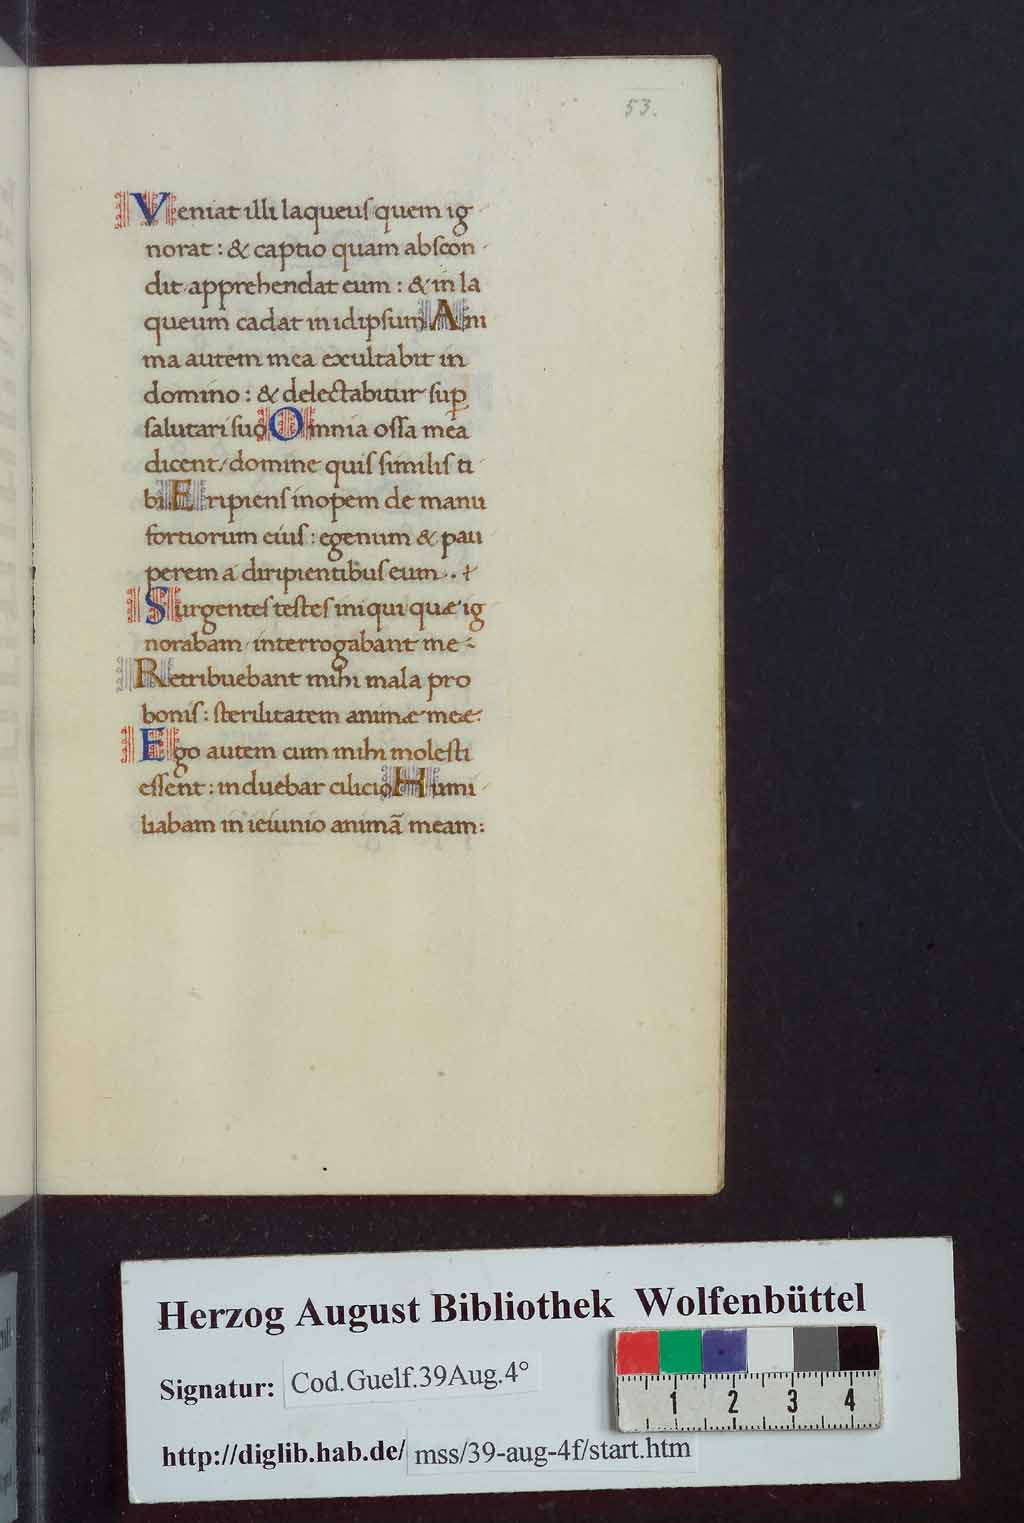 53.
Veniat illi laqueus quem ig
norat : & captio quam abscon
dit apprehendat eum : & in la
queum cadat in idipsum Ani
ma autem mea exultabit in
domino : & delectabitur sup̱
salutari suo Omnia ossa mea
dicent / domine quis similis ti
bi. Eripiens inopem de manu
fortiorum eius : egenum & pau
perem a diripientibus eum . .
Surgentes testes iniqui quæ ig
norabam interrogabant me :
Retribuebant mihi mala pro
bonis : sterilitatem animæ meæ :
Ego autem cum mihi molesti
essent : induebar cilicio Humi
liabam in ieiunio animā meam :
Herzog August Bibliothek Wolfenbüttel
Signatur: Cod.Guelf.39Aug.4°
http://diglib.hab.de/ mss/39-aug-4f/start.htm
1 2 3 4